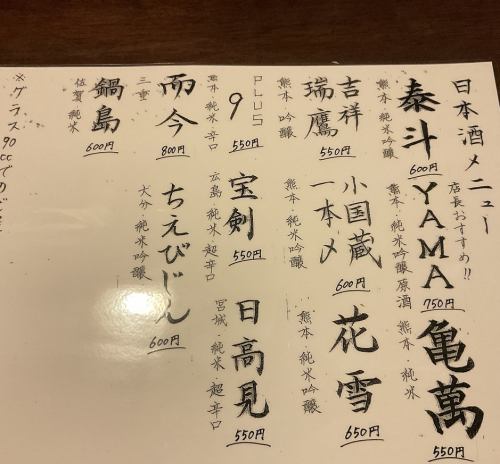 日本酒メニュー
店長おすすめ!!
泰斗
熊本・純米吟醸
600円
YAMA
熊本・純米吟醸原酒
750円
亀萬
熊本・純米
550円
吉祥
瑞鷹
熊本・吟醸
550円
小国蔵
一本〆
熊本・純米吟醸
600円
花雪
熊本・純米吟醸
650円
9
PLUS
熊本・純米・辛口
550円
宝剣
広島・純米・超辛口
550円
日高見
宮城・純米・超辛口
550円
而今
三重
800円
ちえびじん
大分・純米吟醸
600円
鍋島
佐賀・純米
600円
※グラス90ccでの